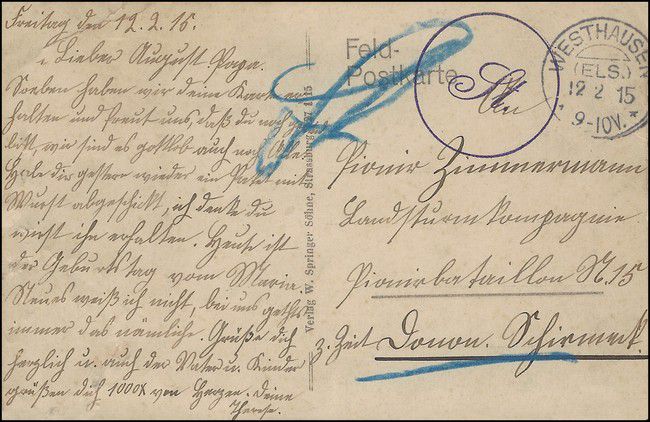 Freitag den 12.2.15.
Lieber August Papa.
Soeben haben wir deine Karte er
halten und freut uns, daß du noch
wir sind es gottlob auch noch
Habe dir gestern wieder ein Paket mit
Wurst abgeschickt, ich denke du
wirst ihn erhalten. Heute ist
der Geburtstag vom Maria
Neues weiß ich nicht, bei uns gehts
immer das nämliche. Grüße dich
herzlich u. auch der Vater u. Kinder
grüßen dich 1000x von Herzen. Deine
Therese.
Verlag W. Springer Söhne, Strassburg
Feld-
Postkarte
An
WESTHAUSEN
(ELS.)
12 2 15
9-10V.
Pionir Zimmermann
Landsturmkompagnie
Pionirbataillon N. 15
z. Zeit Donon. Schirmeck.